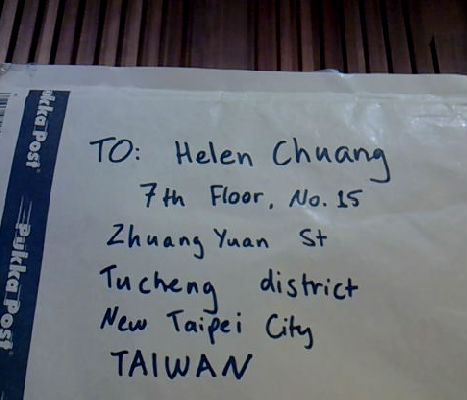 Pukka Post
Pukka Post
TO: Helen Chuang
7th Floor, No. 15
Zhuang Yuan St
Tucheng district
New Taipei City
TAIWAN